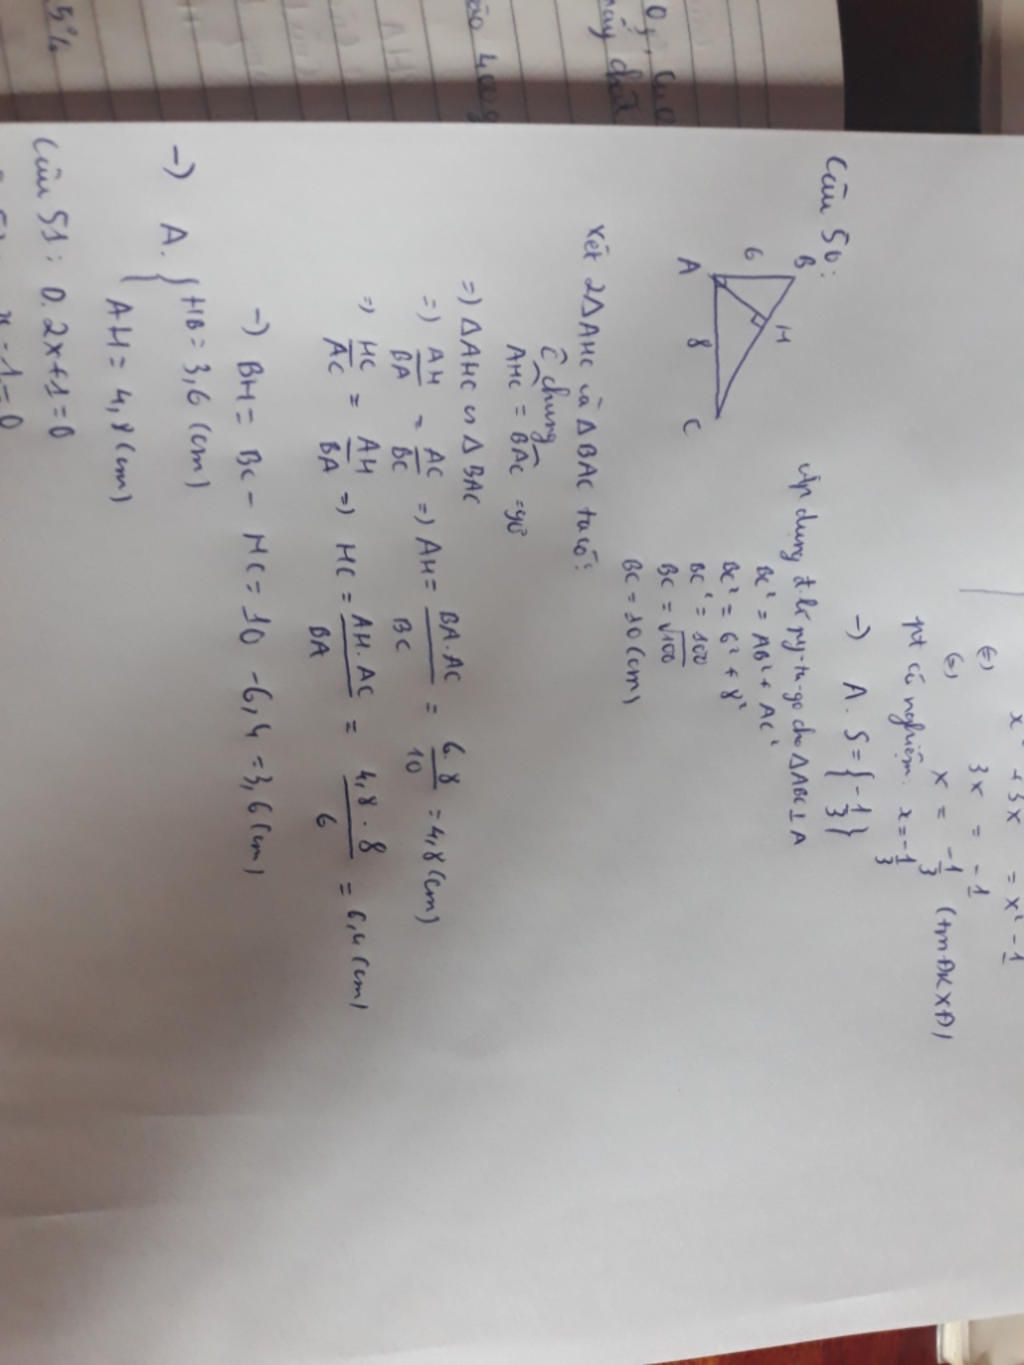 x² + 3x = x² - 1
3x = -1
x = -1/3 (tmĐKXĐ)
pt có nghiệm x = -1/3
-) A. S = {-1/3}
Câu 50:
B
6
H
A
8
C
Áp dụng đ.lí py-ta-go cho ΔABC ⊥ A
BC² = AB² + AC²
BC² = 6² + 8²
BC² = 100
BC = √100
BC = 10 (cm)
Xét 2 Δ AHC và Δ BAC ta có:
Ĉ chung
AHC = BAC = 90°
=) Δ AHC ∽ Δ BAC
=) AH/BA = AC/BC =) AH = BA.AC/BC = 6.8/10 = 4,8 (cm)
=) HC/AC = AH/BA =) HC = AH.AC/BA = 4,8.8/6 = 6,4 (cm)
-) BH = BC - HC = 10 - 6,4 = 3,6 (cm)
-) A. { HB = 3,6 (cm)
AH = 4,8 (cm)
Câu 51: D. 2x+1=0
400g
5%